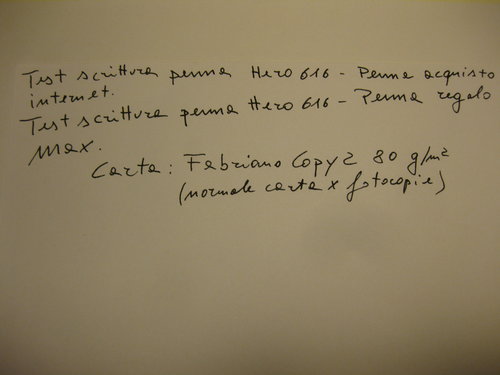 Test scrittura penna Hero 616 - Penna acquisto
internet.
Test scrittura penna Hero 616 - Penna regalo
Max.
Carta: Fabriano Copy 2 80 g/m²
(normale carta x fotocopie)